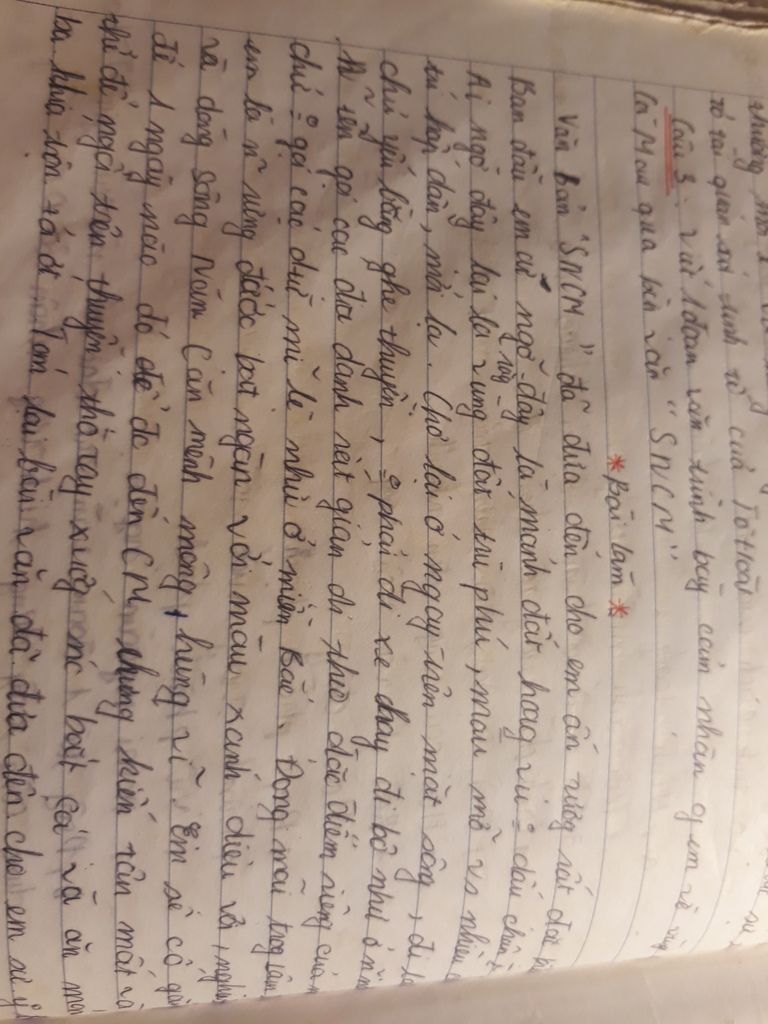 tả lại quan sát tinh tế của Tô Hoài
Câu 3: Viết 1 đoạn văn trình bày cảm nhận of em về vùng
Cà Mau qua bài văn "SNCM"
* Bài làm *
Văn bản "SNCM" đã đưa đến cho em ấn tượng rất đặc
Ban đầu em cứ ngỡ rằng đây là mảnh đất hoag vu dấu chân
Ai ngờ đây lại là vùng đất trù phú, màu mỡ vs nhiều
hấp dẫn, mới lạ. Chợ lại ở ngay trên mặt sông, đi
chủ yếu bằng ghe thuyền, phải đi xe hay đi bộ như ở
tên gọi các địa danh rất giản dị theo đặc điểm riêng của
chứ gọi các mĩ lệ như ở miền Bắc. Đọng mãi trog tâm
em là rừng đước bạt ngàn với màu xanh diệu vời,
và dòng sông Năm Căn mênh mông, hùng vĩ. Em sẽ cố gắng
để 1 ngày nào đó để đc đến CM chứng kiến tận mắt và
thể để ngồi trên thuyền thả tay xuống nc bắt cá và ăn
ba khía Tóm lại bài văn đã đưa đến cho em